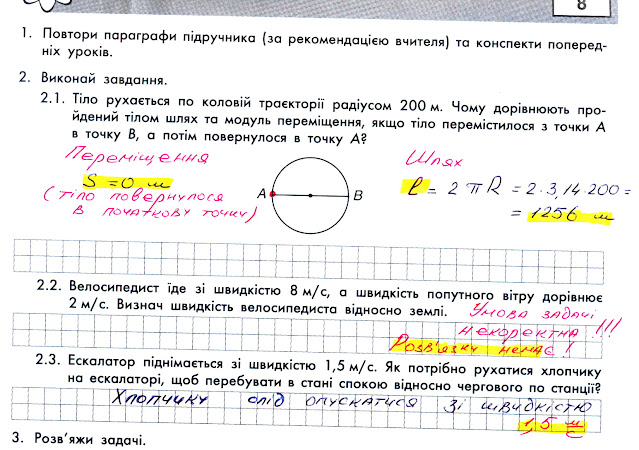 8
1. Повтори параграфи підручника (за рекомендацією вчителя) та конспекти поперед-
ніх уроків.
2. Виконай завдання.
2.1. Тіло рухається по коловій траєкторії радіусом 200 м. Чому дорівнюють про-
йдений тілом шлях та модуль переміщення, якщо тіло перемістилося з точки А
в точку В, а потім повернулося в точку А?
Переміщення
S = 0 м
(тіло повернулося
в початкову точку)
A B
Шлях
ℓ = 2πR = 2·3,14·200 =
= 1256 м
2.2. Велосипедист їде зі швидкістю 8 м/с, а швидкість попутного вітру дорівнює
2 м/с. Визнач швидкість велосипедиста відносно землі. Умова задачі
некоректна !!!
Розв'язку немає !
2.3. Ескалатор піднімається зі швидкістю 1,5 м/с. Як потрібно рухатися хлопчику
на ескалаторі, щоб перебувати в стані спокою відносно чергового по станції?
Хлопчику слід опускатися зі швидкістю
1,5 м/с
3. Розв'яжи задачі.